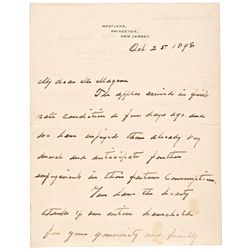 WESTLAND,
PRINCETON,
NEW JERSEY.
Oct 25. 1898
My dear Mr Magown
The apples arrived in first
rate condition a few days ago and
we have enjoyed them already very
much and anticipate further
enjoyment in their further consumption.
You have the hearty
thanks of our entire household
for your generosity and friendly